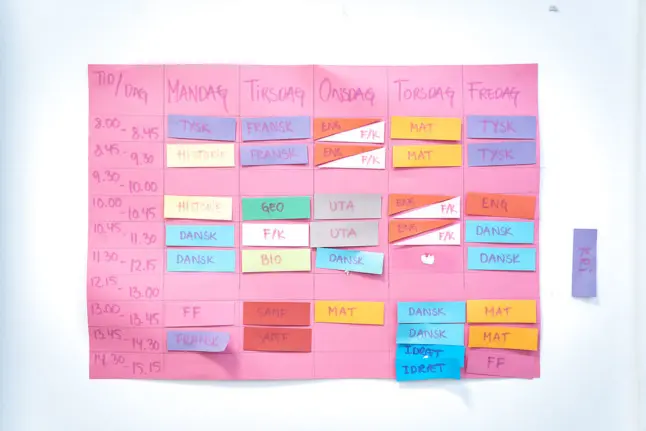 TID/DAG MANDAG TIRSDAG ONSDAG TORSDAG FREDAG
8.00-8.45 TYSK FRANSK ENG F/K MAT TYSK
8.45-9.30 HISTORIE FRANSK ENG F/K MAT TYSK
9.30-10.00
10.00-10.45 HISTORIE GEO UTA ENG F/K ENG
10.45-11.30 DANSK F/K UTA ENG F/K DANSK
11.30-12.15 DANSK BIO DANSK DANSK
12.15-13.00
13.00-13.45 FF SAMF MAT DANSK MAT
13.45-14.30 FRANSK SAMF DANSK MAT
IDRÆT
14.30-15.15 IDRÆT FF
KRS